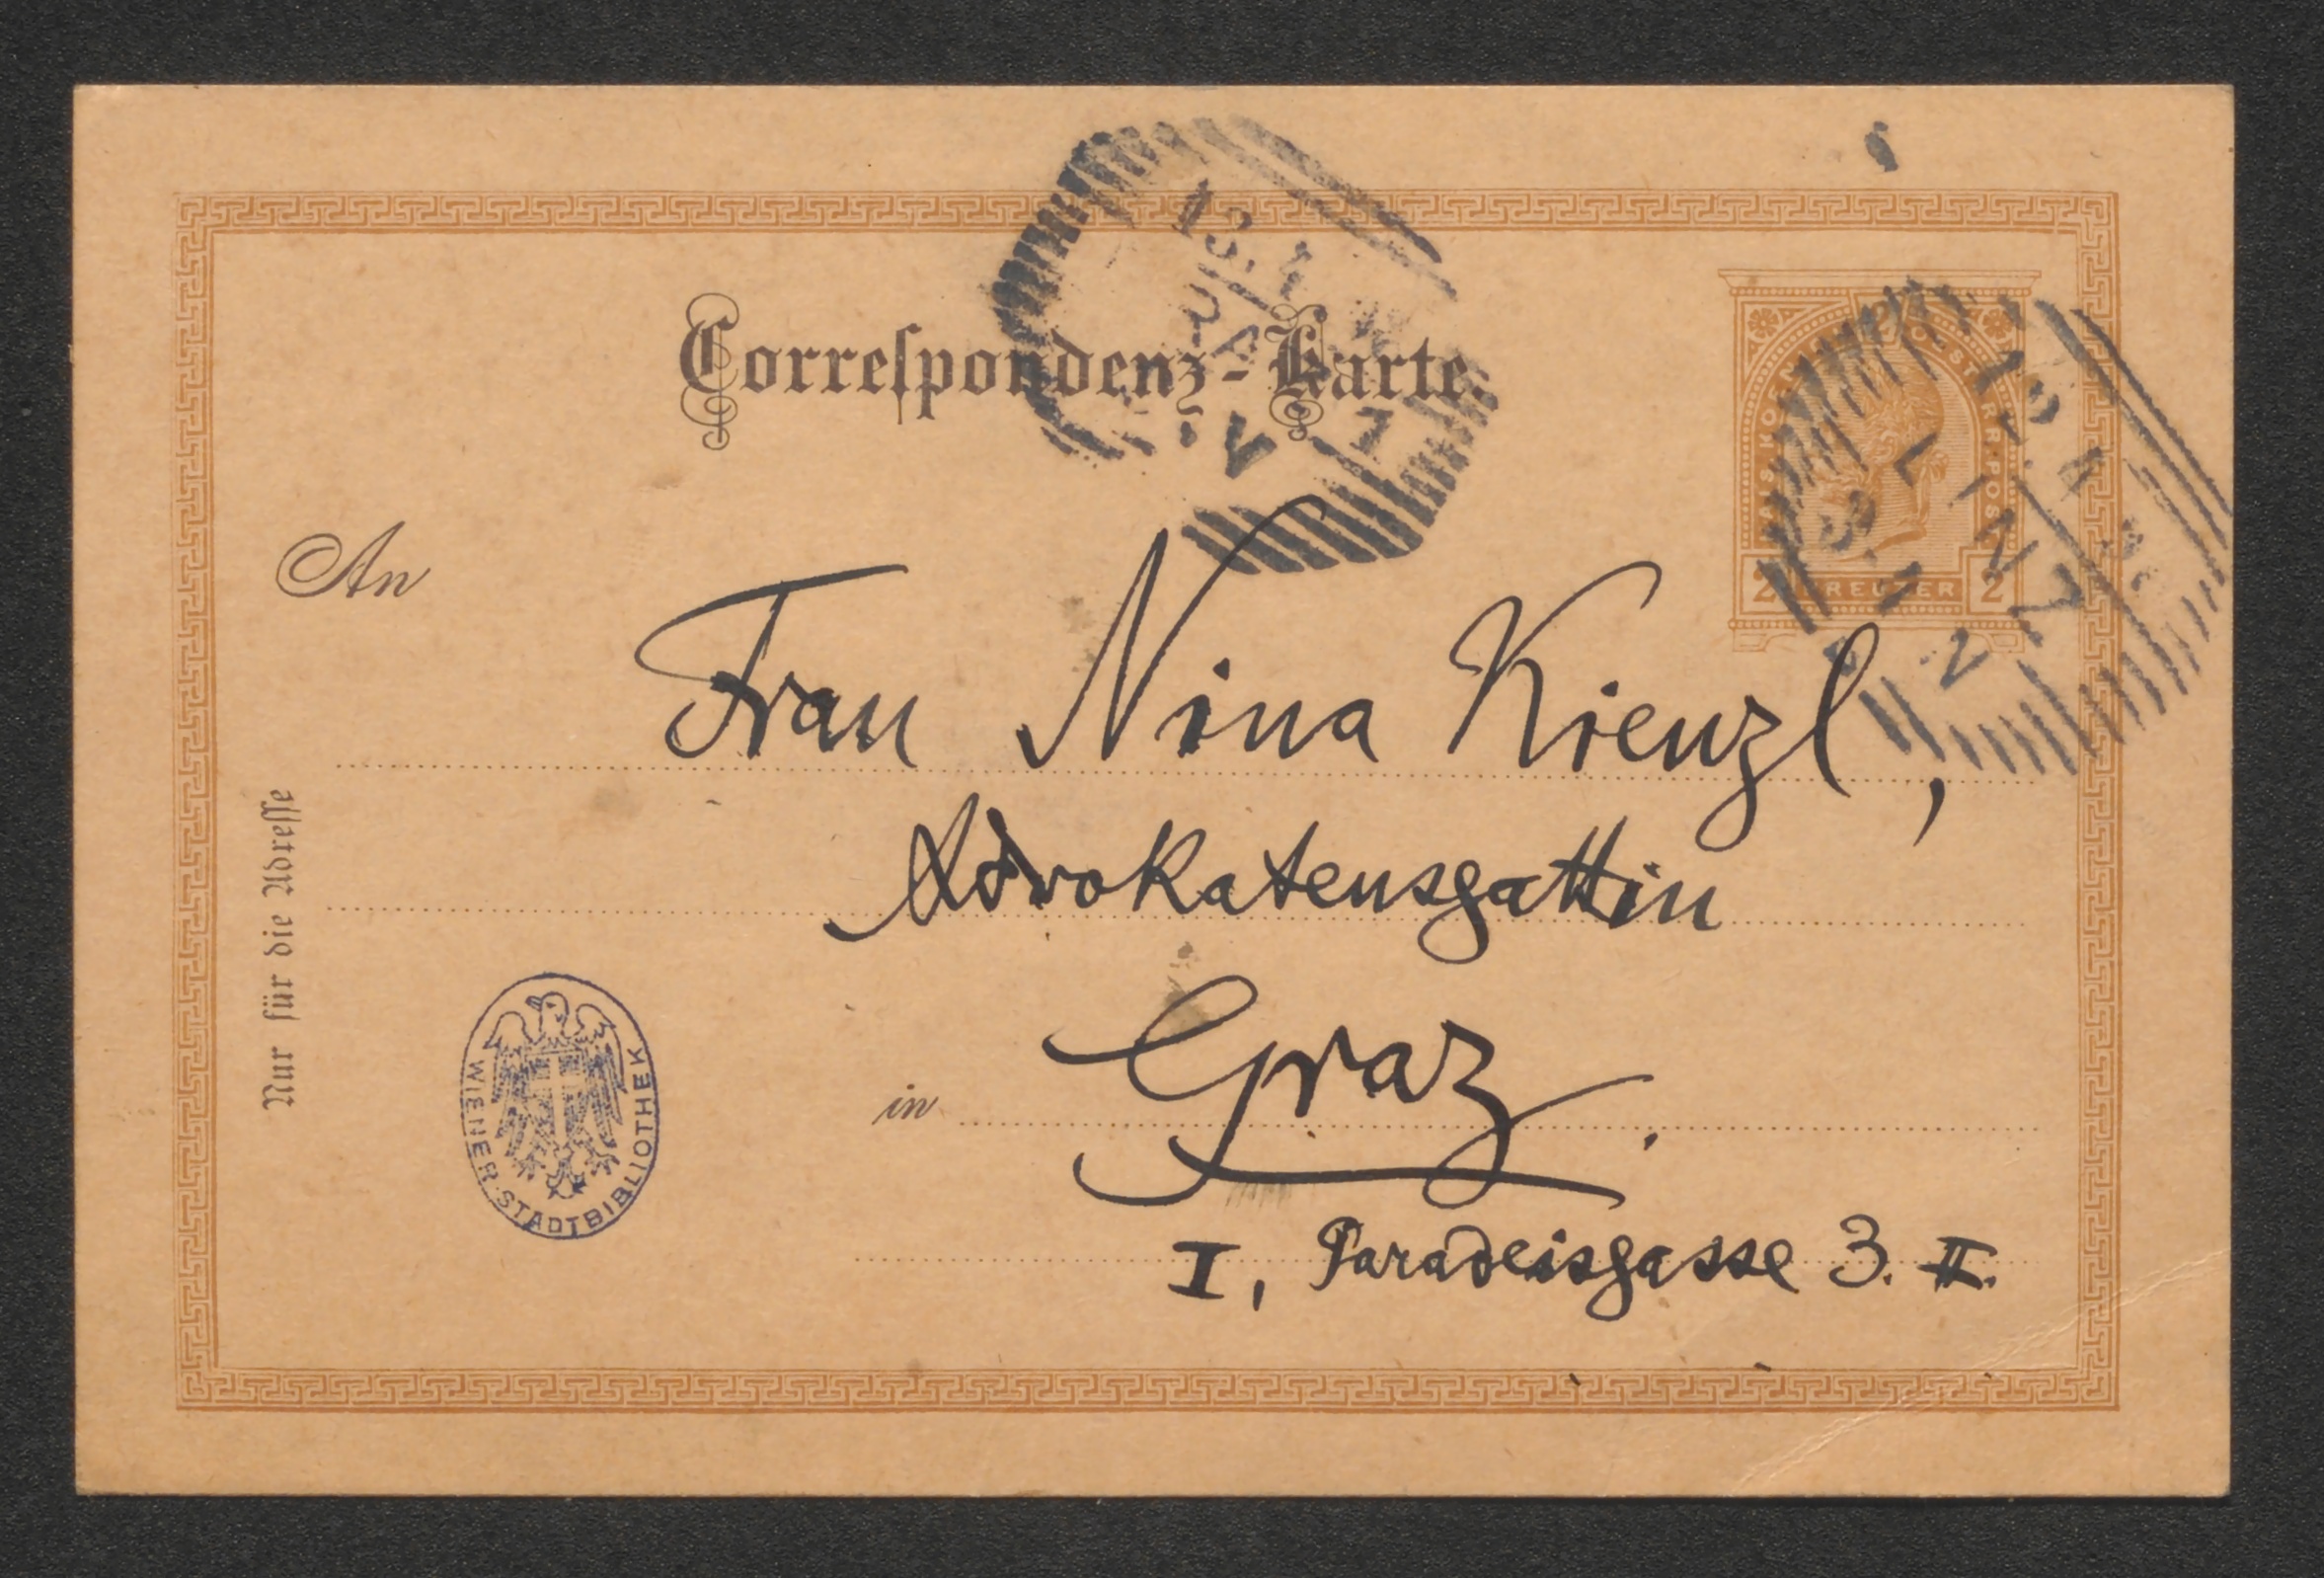 Correspondenz-Karte.
KAIS. KOEN. OEST
2 KREUZER 2
LINZ
An
Frau Nina Kienzl,
Advokatensgattin
in Graz.
I, Paradeisgasse 3. II.
Nur für die Adresse
WIENER STADTBIBLIOTHEK